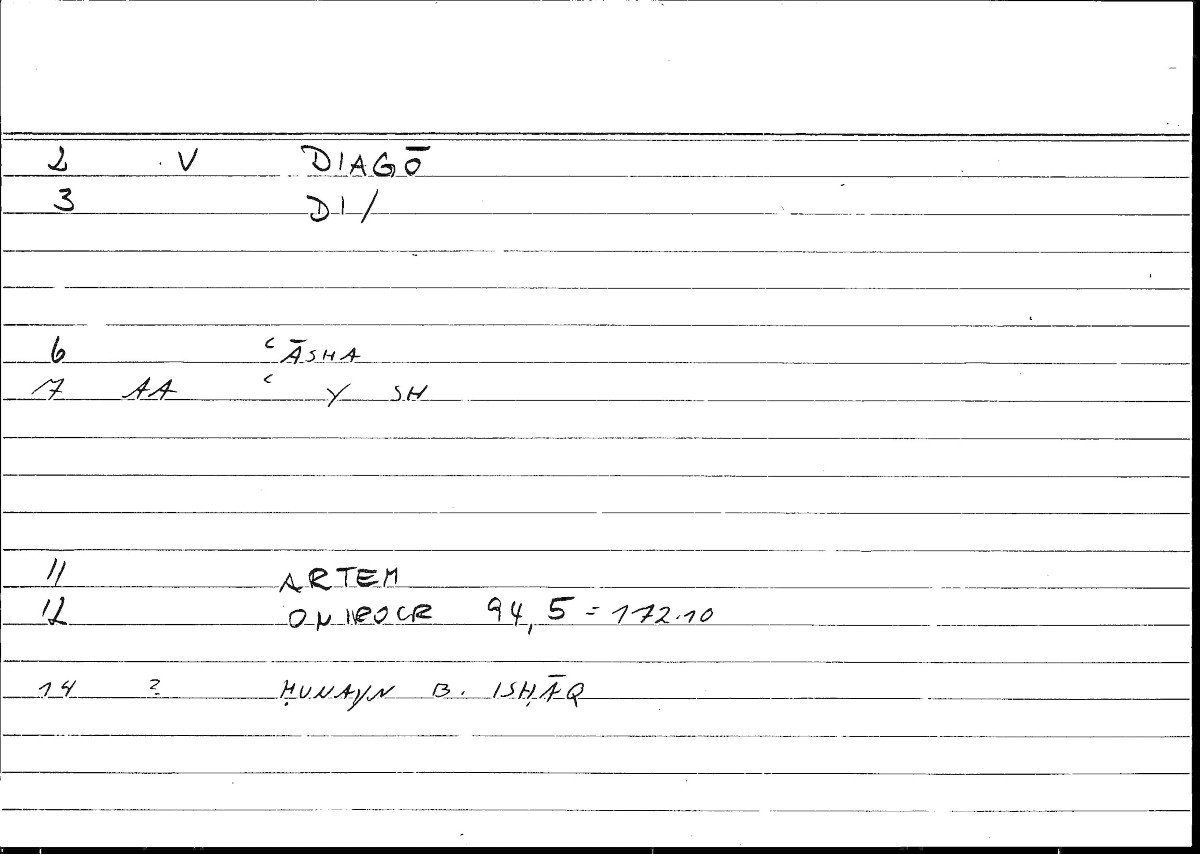 2 V DIAGŌ
3 DI/
6 ʿĀSHA
7 AA ʿ Y SH
11 ARTEM
12 ONIROCR 94,5 = 172.10
14 ? ḤUNAYN B. ISḤĀQ